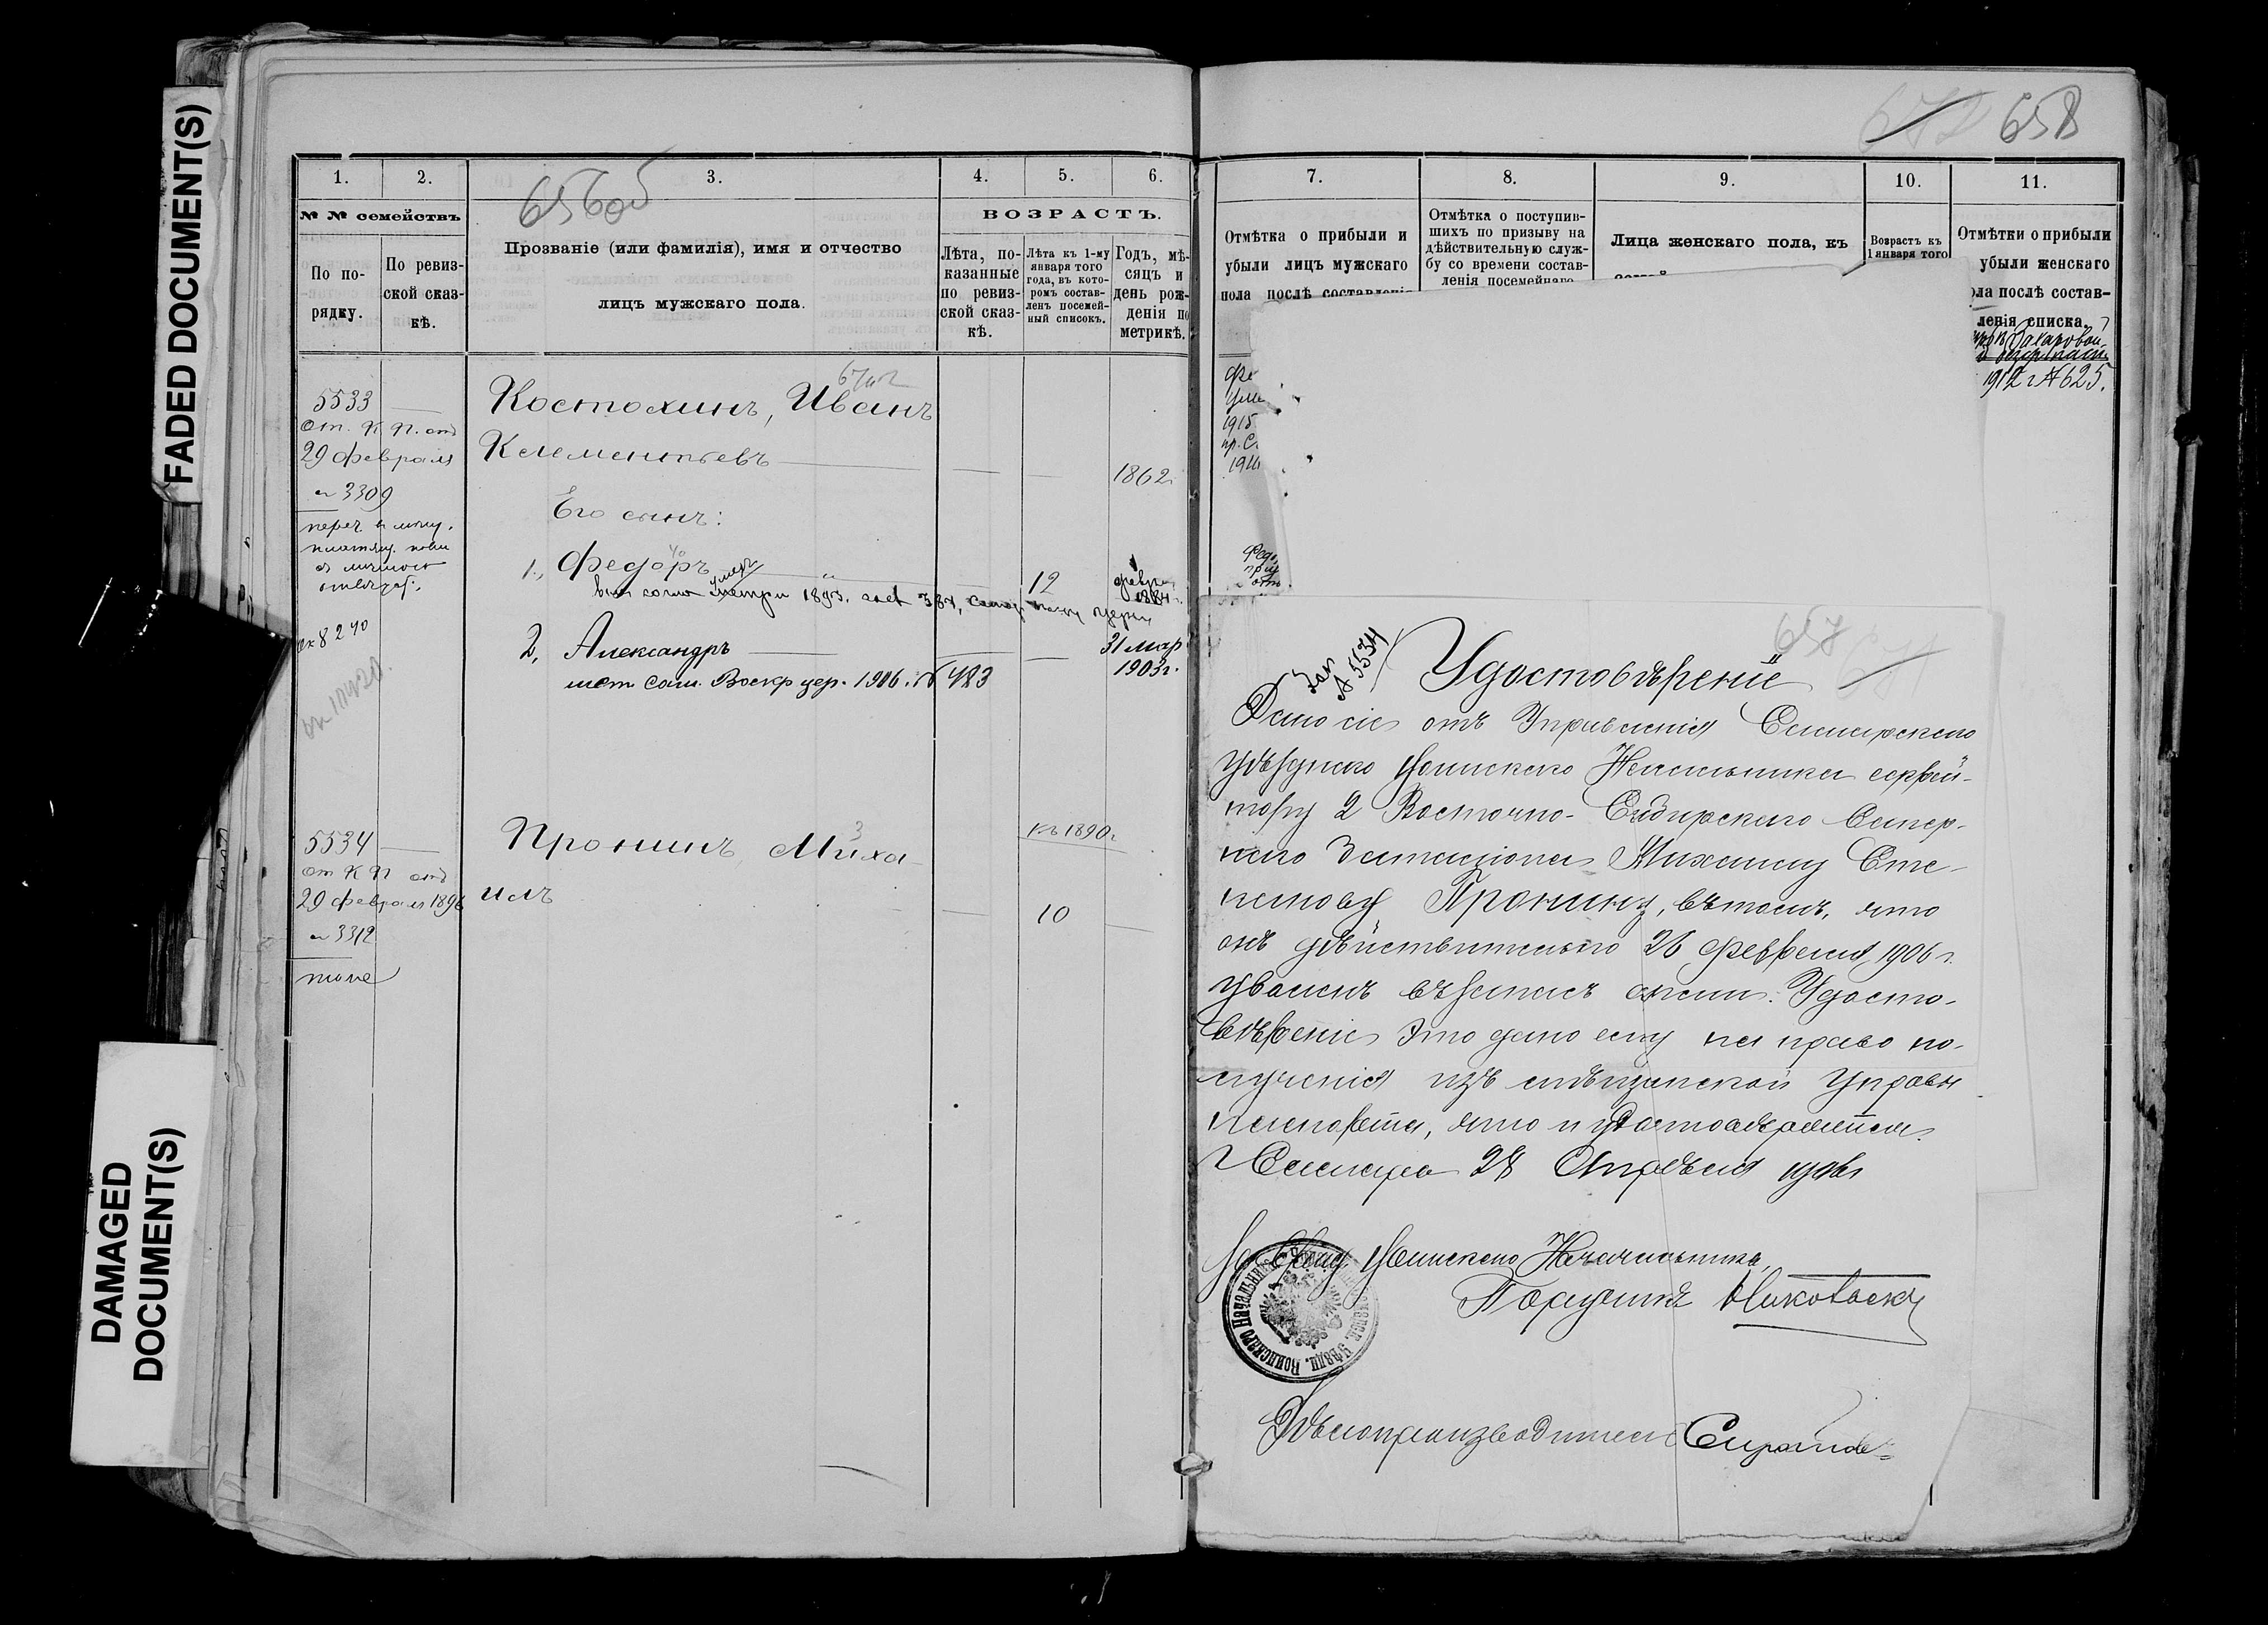 FADED DOCUMENT(S)
DAMAGED
DOCUMENT(S)
656об
1. 2. 3. 4. 5. 6.
№ № семействъ
По по-
рядку.
По ревиз-
ской сказ-
кѣ.
Прозваніе (или фамилія), имя и отчество
лицъ мужскаго пола.
ВОЗРАСТЪ.
Лѣта, по-
казанные
по ревиз-
ской сказ-
кѣ.
Лѣта къ 1-му
января того
года, въ кото-
ромъ состав-
ленъ посемей-
ный списокъ.
Годъ, мѣ-
сяцъ и
день рож-
денія по
метрикѣ.
5533
от. К П. отъ
29 февраля
№ 3309
Костюхинъ, Иванъ
Клементьевъ
1862
Его сынъ:
1., Федоръ 12
умеръ
2, Александръ 31 мар
1903г.
мет Сам. Воскр цер. 1906. № 483
5534
от К П отъ
29 февраля 1896
№ 3312
тоже
Пронинъ Миха
илъ
къ 1890г
10
658
7. 8. 9. 10. 11.
Отмѣтка о прибыли и
убыли лицъ мужскаго
пола послѣ
Отмѣтка о поступив-
шихъ по призыву на
дѣйствительную служ-
бу со времени состав-
ленія посемейнаго
Лица женскаго пола, къ
Возрастъ къ
1 января того
Отмѣтки о прибыли
убыли женскаго
ла послѣ состав-
ленія списка.
1912 г № 625.
1915
657
№ 5534
Удостовѣреніе
Дано сіе отъ Управленія Самарскаго
Уѣзднаго Воинскаго Начальника ефрей-
тору 2 Восточно-Сибирскаго Сапер-
наго Баталіона Михаилу Сте-
панову Пронину, въ томъ, что
онъ дѣйствительно 26 февраля 1906 г.
уволенъ въ запасъ арміи. Удосто-
вѣреніе это дано ему на право по-
лученія изъ мѣщанской Управы
паспорта, что и удостовѣряется.
г Самара 28 Апрѣля 1906г
За Уѣзд Воинскаго Начальника,
Поручикъ
Дѣлопроизводитель